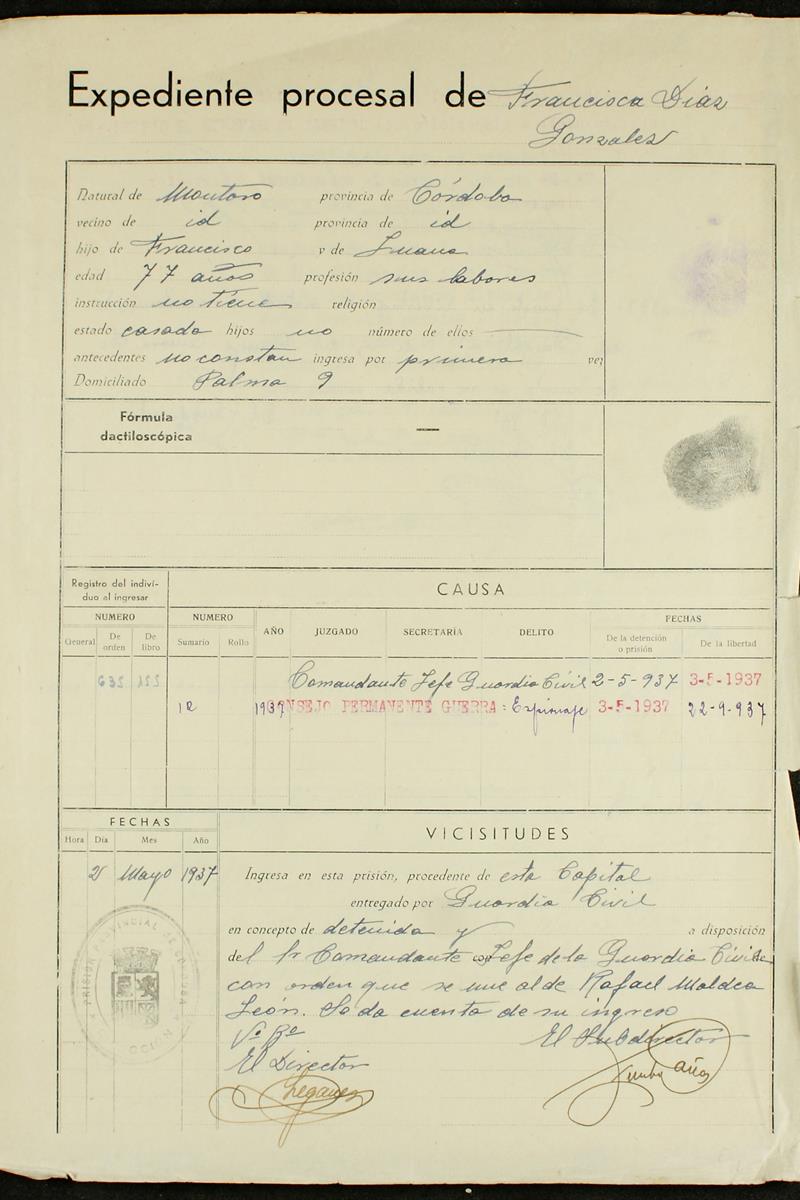 Expediente procesal de Francisca Diaz
Gonzales
Natural de Montoro provincia de Córdoba
vecino de id provincia de id
hijo de Francisco y de Juana
edad 77 años profesión sus labores
instrucción no tiene religión
estado casada hijos no número de ellos
antecedentes no constan ingresa por primera vez
Domiciliado Palma 9
Fórmula
dactiloscópica —
Registro del indivi-
duo al ingresar
CAUSA
NUMERO NUMERO AÑO JUZGADO SECRETARÍA DELITO FECHAS
General De orden De libro Sumario Rollo De la detención o prisión De la libertad
Comandante Jefe Guardia Civil 2-5-937 3-5-1937
1937 CONSEJO PERMANENTE GUERRA: Espionaje 3-5-1937 22-9-937
FECHAS VICISITUDES
Hora Día Mes Año
2 Mayo 1937 Ingresa en esta prisión, procedente de esta Capital
entregado por Guardia Civil
en concepto de detenida y a disposición
del Sr Comandante Jefe de la Guardia Civil
con orden que se une al de Rafael
León. Se da cuenta de su ingreso
Vº Bº El Subdirector
El Director
PRISIÓN PROVINCIAL DE CÓRDOBA